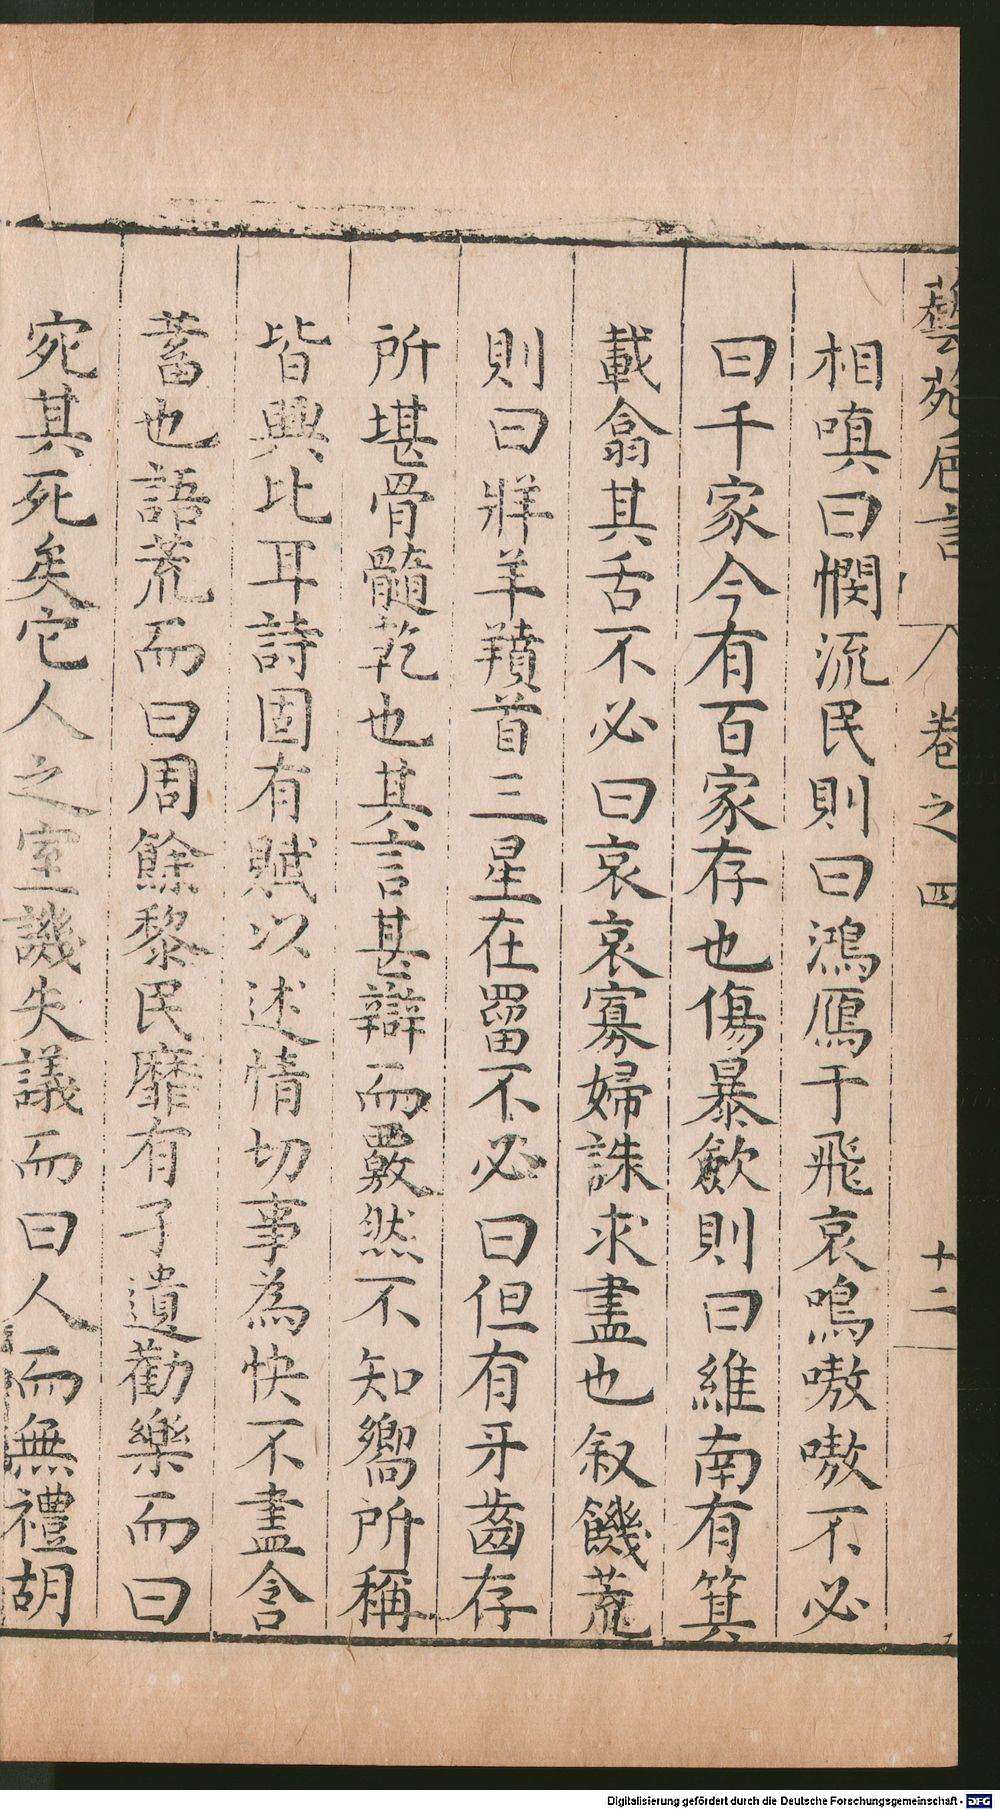 藝苑卮言 八 卷之四 十二
相嗔曰憫流民則曰鴻鴈于飛哀鳴嗷嗷不必
曰千家今有百家存也傷暴斂則曰維南有箕
載翕其舌不必曰哀哀寡婦誅求盡也叙饑荒
則曰牂羊羵首三星在罶不必曰但有牙齒存
所堪骨髓乾也其言甚辯而覈然不知嚮所稱
皆興比耳詩固有賦以述情切事為快不盡含
蓄也語荒而曰周餘黎民靡有孑遺勸樂而曰
宛其死矣它人之室譏失議而曰人而無禮胡
Digitalisierung gefördert durch die Deutsche Forschungsgemeinschaft - DFG